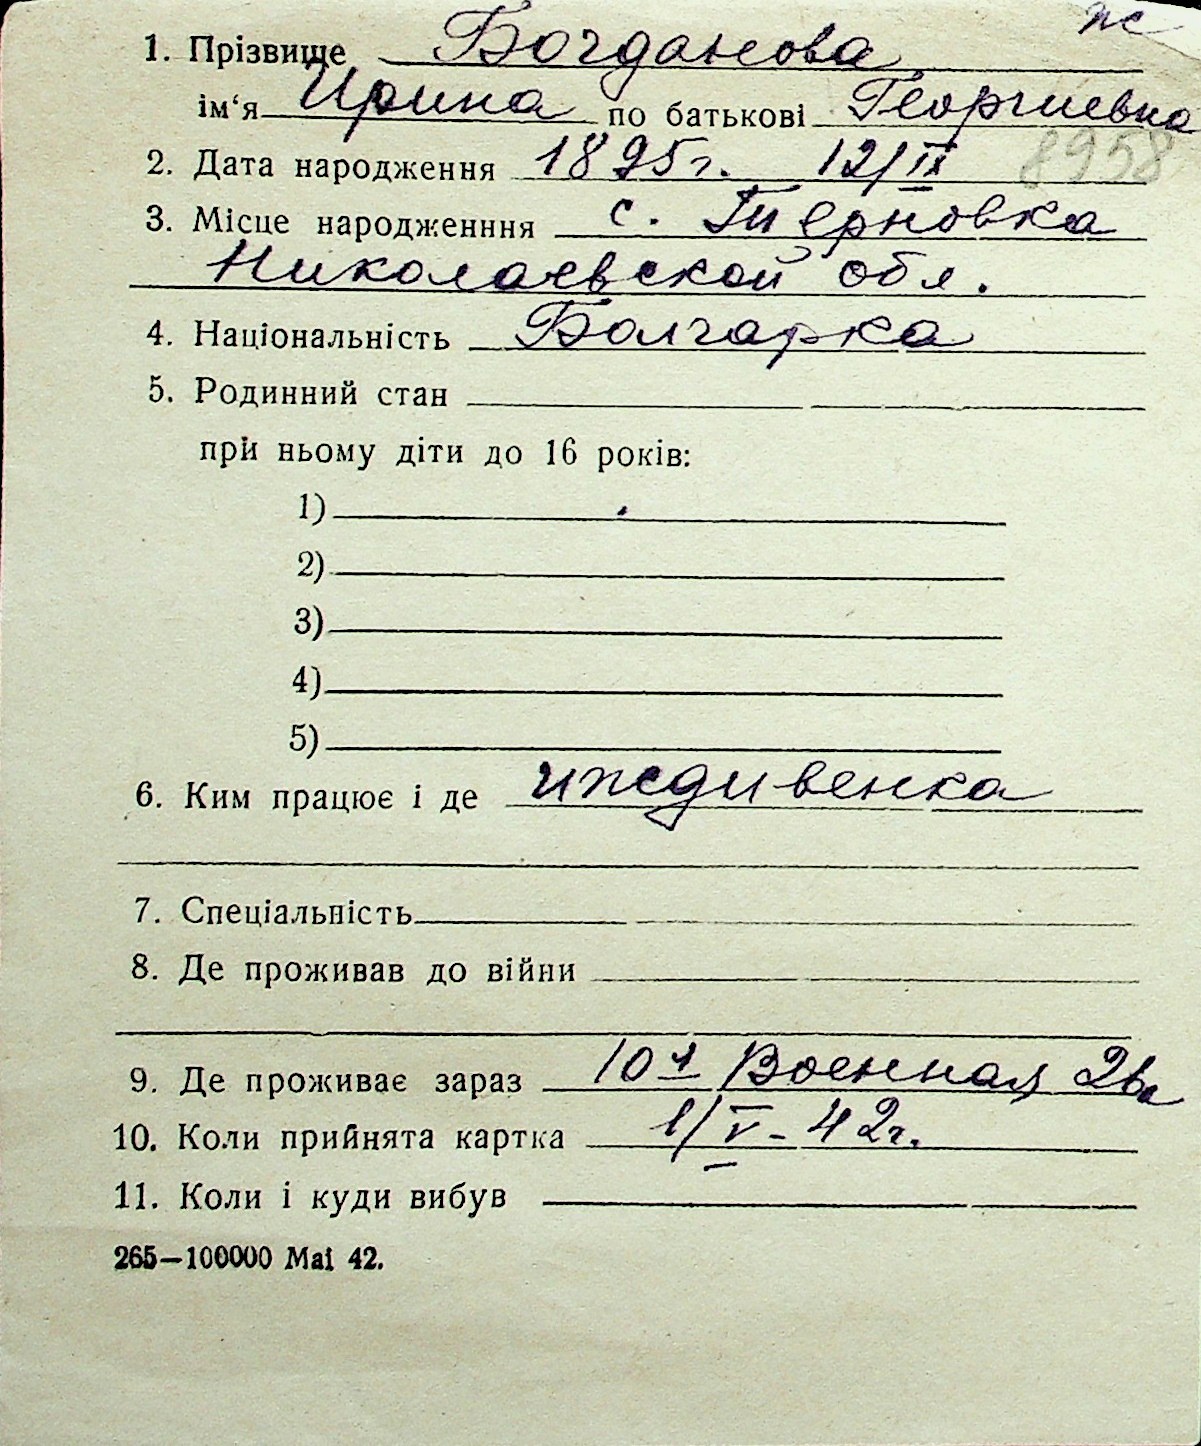 ж
1. Прізвище Богданова
ім‘я Ирина по батькові Георгиевна
2. Дата народження 1895г. 12/IX
8958
3. Місце народженння с. Терновка
Николаевской обл.
4. Національність Болгарка
5. Родинний стан
при ньому діти до 16 років:
1)
2)
3)
4)
5)
6. Ким працює і де иждивенка
7. Спеціальність
8. Де проживав до війни
9. Де проживає зараз 10я Военная 2в
10. Коли прийнята картка 1/V-42г.
11. Коли і куди вибув
265—100000 Mai 42.